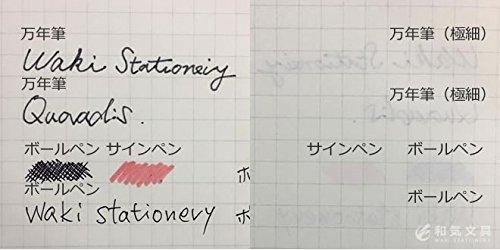 万年筆
Waki Stationeiy
万年筆
Quovadis.
ボールペン サインペン
ボールペン
Waki Stationevy
ボ
ボ
万年筆（極細）
万年筆（極細）
サインペン ボールペン
ボールペン
和気文具
WAKI STATIONERY